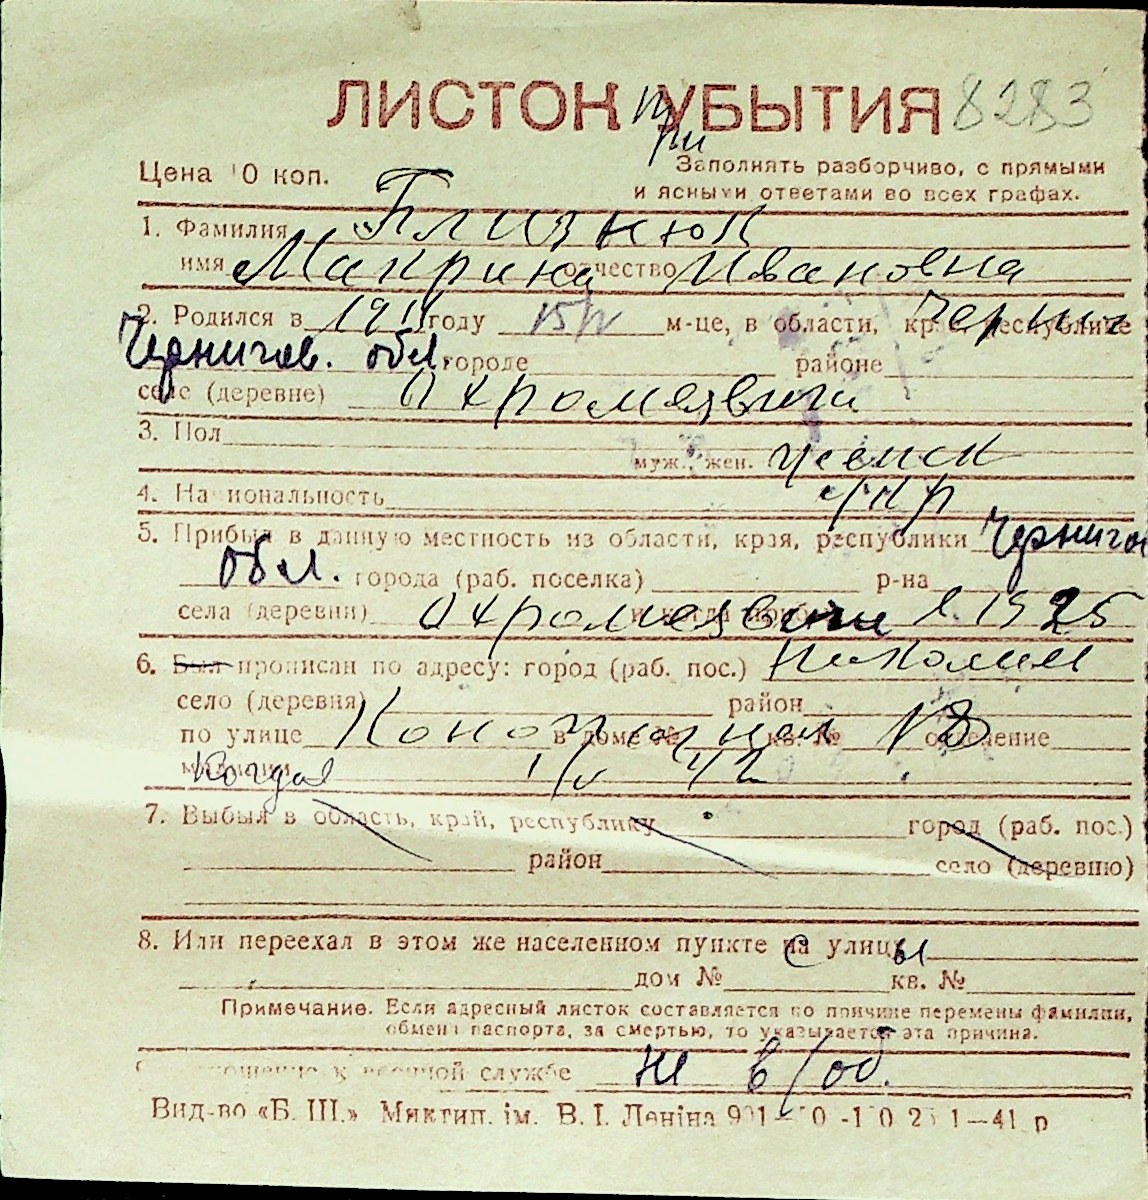 ЛИСТОК УБЫТИЯ 8283
при
Цена 10 коп.
Заполнять разборчиво, с прямыми
и ясными ответами во всех графах.
1. Фамилия Близнюк
имя Макрина отчество Ивановна
2. Родился в 1911 году 15/IV м-це, в области, края, республике
Чернигов. обл. городе районе
селе (деревне)
3. Пол муж., жен. женск
4. Национальность укр
5. Прибыл в данную местность из области, края, республики Чернигов
обл. города (раб. поселка) р-на
села (деревни) в 1925
6. Был прописан по адресу: город (раб. пос.)
село (деревня) район
по улице в доме № кв. № N 8 отделение
милиции Когда IV 42
7. Выбыл в область, край, республику город (раб. пос.)
район село (деревню)
8. Или переехал в этом же населенном пункте на улицу с ы
дом № кв. №
Примечание. Если адресный листок составляется по причине перемены фамилии,
обмена паспорта, за смертью, то указывается эта причина.
отношение к военной службе не в/об.
Вид-во «Б. Ш.» Миктип. ім. В. І. Леніна